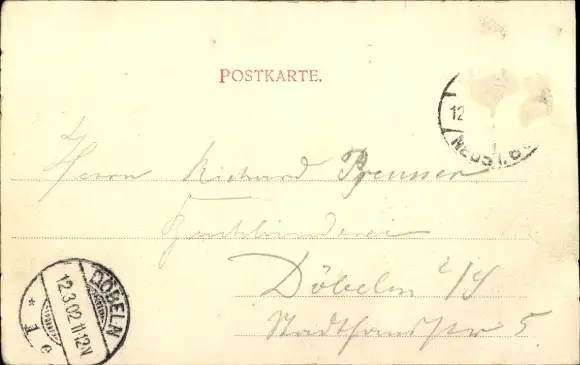 POSTKARTE.
12
NEUST. B
Herrn Richard Preusser
Buchbinderei
Döbeln i/S
Stadthausstr 5
DÖBELN
12.3.02.11-12V
* 1 e